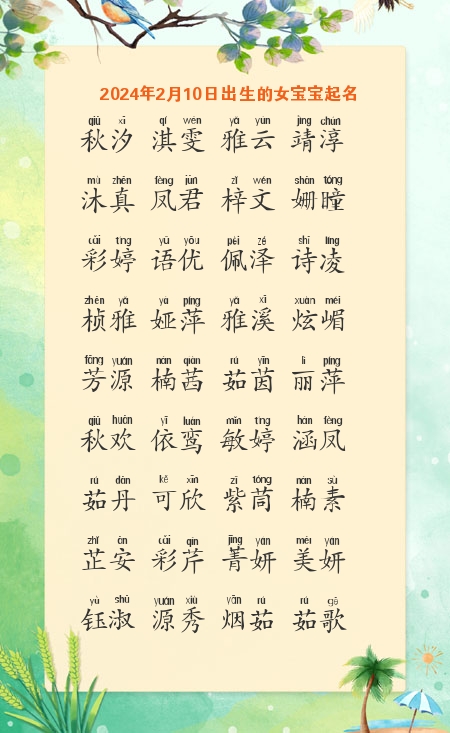 2024年2月10日出生的女宝宝起名
qiū xī qí wén yǎ yún jìng chún
秋汐 淇雯 雅云 靖淳
mù zhēn fèng jūn zǐ wén shān tóng
沐真 凤君 梓文 姗瞳
cǎi tíng yǔ yōu pèi zé shī líng
彩婷 语优 佩泽 诗凌
zhēn yǎ yà píng yǎ xī xuàn mèi
桢雅 娅萍 雅溪 炫嵋
fāng yuán nán qiàn rú yīn lì píng
芳源 楠茜 茹茵 丽萍
qiū huān yī luán mǐn tíng hán fèng
秋欢 依鸾 敏婷 涵凤
rú dān kě xīn zǐ tóng nán sù
茹丹 可欣 紫茼 楠素
zhǐ ān cǎi qín jīng yán měi yán
芷安 彩芹 菁妍 美妍
yù shū yuán xiù yān rú rú gē
钰淑 源秀 烟茹 茹歌